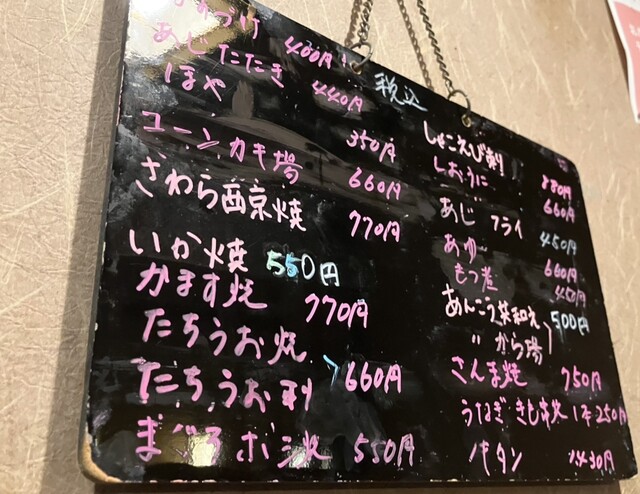 税込
400円
あじたたき 440円
ほや 350円
コーンカキ揚 660円
さわら西京焼 770円
いか焼 550円
かます焼 770円
たちうお焼
たちうお刺 660円
まぐろポン水 550円
しゃこえび刺 880円
しおうに 660円
あじフライ 450円
あゆ 660円
もつ煮 450円
あんこう共和え 500円
〃 から揚
さんま焼 750円
うなぎ 1本 250円
430円